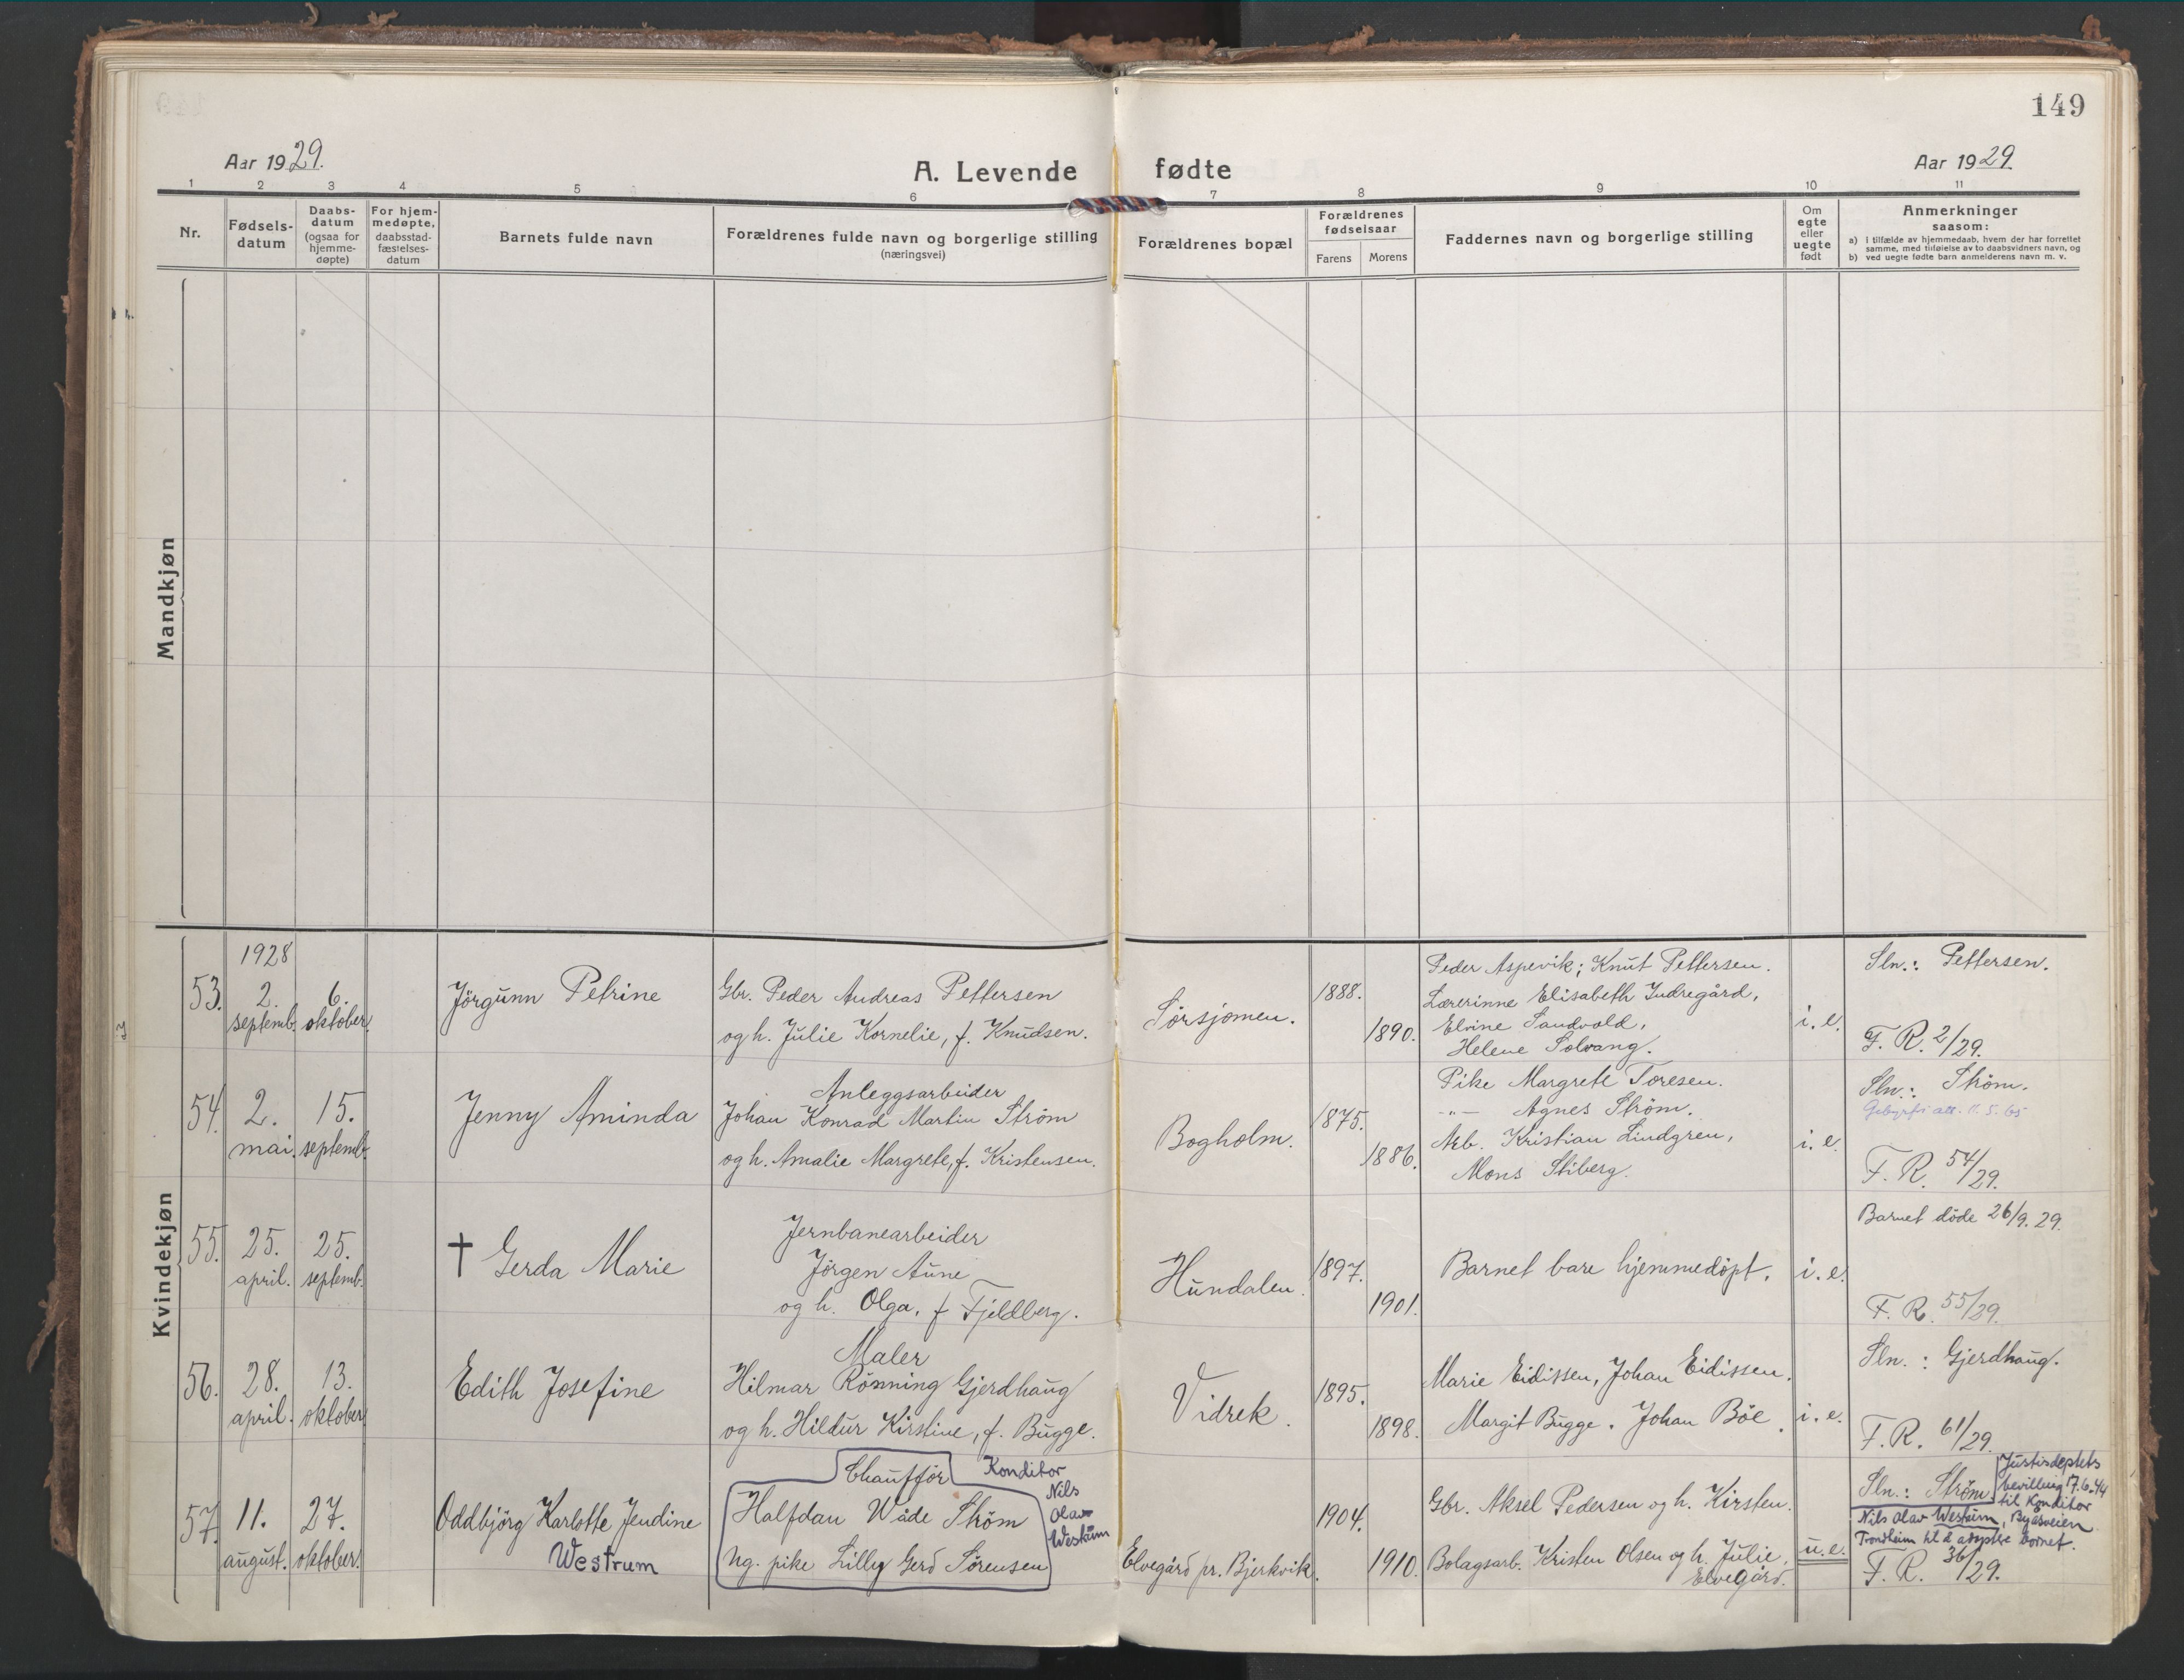 149
Aar 1929.
A. Levende fødte
Aar 1929.
1 2 3 4 5 6 7 8 9 10 11
Nr.
Fødsels-
datum
Daabs-
datum
(ogsaa for
hjemme-
døpte)
For hjem-
medøpte,
daabsstad-
fæstelses-
datum
Barnets fulde navn
Forældrenes fulde navn og borgerlige stilling
(næringsvei)
Forældrenes bopæl
Forældrenes
fødselsaar
Farens Morens
Faddernes navn og borgerlige stilling
Om
egte
eller
uegte
født
Anmerkninger
saasom:
a) i tilfælde av hjemmedaab, hvem der har forrettet
samme, med tilføielse av to daabsvidners navn, og
b) ved uegte fødte barn anmelderens navn m. v.
Mandkjøn
Kvindekjøn
53.
1928
2.
septemb.
6.
oktober.
Jörgunn Petrine
Gbr. Peder Andreas Pettersen
og h. Julie Kornelie, f. Knudsen.
Sörsjomen.
1888.
1890.
Peder Aspevik; Knut Pettersen.
Lærerinne Elisabeth Indregård,
Elvine Sandvold,
Helene Solvang.
i. e.
Sln.: Pettersen.
F. R. 2/29.
54.
2.
mai.
15.
septemb.
Jenny Aminda
Anleggsarbeider
Johan Konrad Martin Ström
og h. Amalie Margrete, f. Kristensen.
Bogholm.
1875.
1886.
Pike Margrete Toresen.
-"- Agnes Ström.
Arb. Kristian Lindgren,
Mons Stiberg.
i. e.
Sln.: Ström.
Gebyrfri att. 11.5.65
F. R. 54/29.
55.
25.
april.
25.
septemb.
† Gerda Marie
Jernbanearbeider
Jörgen Aune
og h. Olga, f. Fjeldberg.
Hundalen.
1897.
1901.
Barnet bare hjemmedöpt.
i. e.
Barnet döde 26/9. 29.
F. R. 55/29.
56.
28.
april.
13.
oktober
Edith Josefine
Maler
Hilmar Rönning Gjerdhaug
og h. Hildur Kirstine, f. Bugge.
Vidrek.
1895.
1898.
Marie Eidissen, Johan Eidissen.
Margit Bugge. Johan Böe.
i. e.
Sln.: Gjerdhaug.
F. R. 61/29.
57.
11.
august.
27.
oktober.
Oddbjörg Karlotte Jendine
Westrum
Chaufför
Halfdan Wåde Ström
Ug. pike Lilly Gerd Sörensen
Konditor
Nils
Olav
Westrum
Elvegård pr. Bjerkvik.
1904.
1910.
Gbr. Aksel Pedersen og h. Kirsten.
Bolagsarb. Kristen Olsen og h. Julie,
Elvegård.
u. e.
Sln.: Ström.
Justisdeptets
bevilling 17.6.44
til Konditor
Nils Olav Westrum, Byåsveien
Trondheim til å adoptere barnet.
F. R. 36/29.